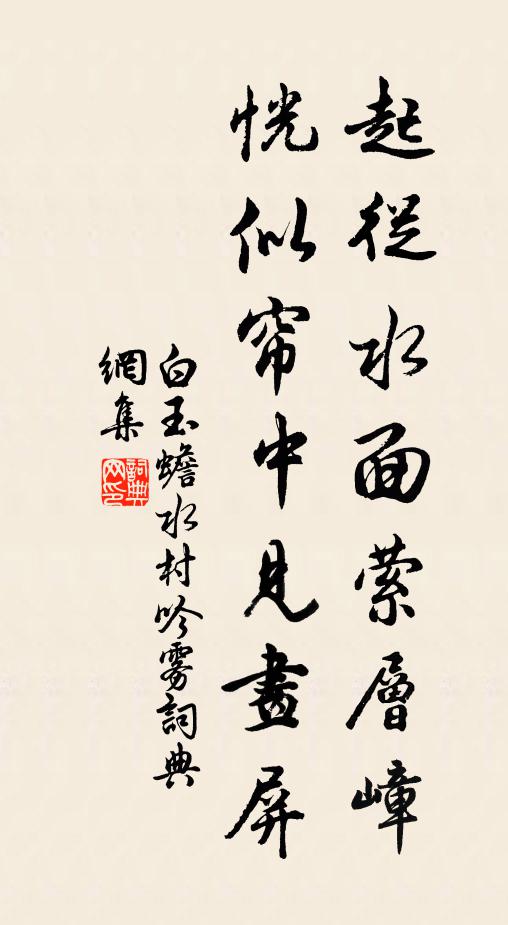 起從水面萦層嶂
恍似帘中見畫屏
白玉蟾水村吟雾詞典
網集
詞典网印